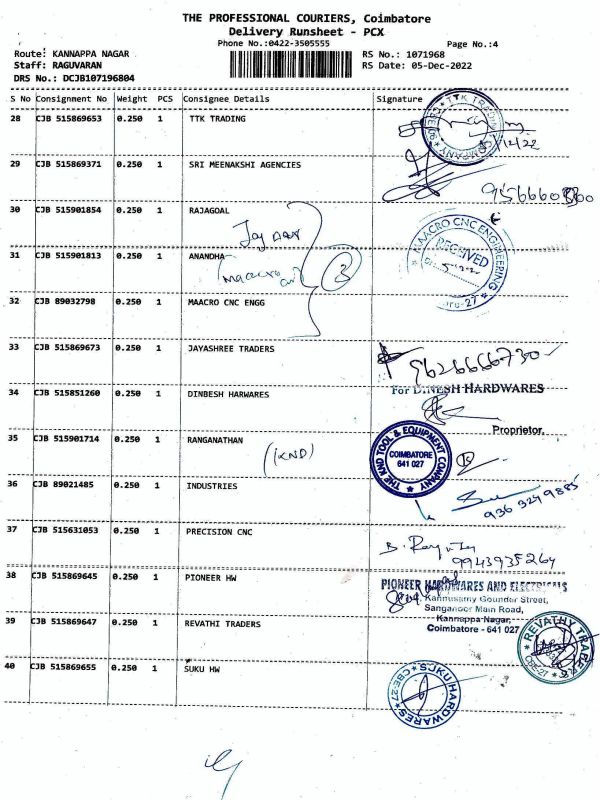 THE PROFESSIONAL COURIERS, Coimbatore
Delivery Runsheet - PCX
Phone No.:0422-3505555
Page No.:4
Route: KANNAPPA NAGAR
RS No.: 1071968
Staff: RAGUVARAN
RS Date: 05-Dec-2022
DRS No.: DCJB107196804
S No Consignment No Weight PCS Consignee Details Signature
28 CJB 515869653 0.250 1 TTK TRADING
TTK TRADING COMPANY
29 CJB 515869371 0.250 1 SRI MEENAKSHI AGENCIES
30 CJB 515901854 0.250 1 RAJAGOAL
MAACRO CNC ENGINEERING
RECEIVED
31 CJB 515901813 0.250 1 ANANDHA
Maacro
3
32 CJB 89032798 0.250 1 MAACRO CNC ENGG
33 CJB 515869673 0.250 1 JAYASHREE TRADERS
9626666730
34 CJB 515851260 0.250 1 DINBESH HARWARES
For DINESH HARDWARES
Proprietor.
35 CJB 515901714 0.250 1 RANGANATHAN
(KND)
THE KND TOOL & EQUIPMENT COMPANY
COIMBATORE
641 027
36 CJB 89021485 0.250 1 INDUSTRIES
936 3249885
37 CJB 515631053 0.250 1 PRECISION CNC
9943935264
38 CJB 515869645 0.250 1 PIONEER HW
PIONEER HARDWARES AND ELECTRICALS
Kannusamy Gounder Street,
Sanganoor Main Road,
Kannappa Nagar,
Coimbatore - 641 027
39 CJB 515869647 0.250 1 REVATHI TRADERS
REVATHY TRADERS
CBE-27
40 CJB 515869655 0.250 1 SUKU HW
SUKU HARDWARES
CBE-27